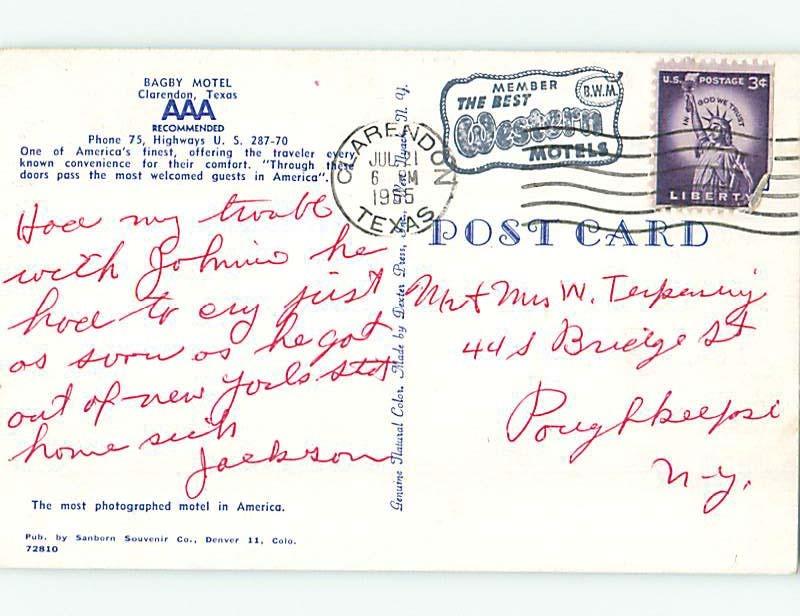 BAGBY MOTEL
Clarendon, Texas
AAA
RECOMMENDED
Phone 75, Highways U. S. 287-70
One of America's finest, offering the traveler every
known convenience for their comfort. "Through these
doors pass the most welcomed guests in America".
Had my trouble
with Johnnie he
had to cry just
as soon as he got
out of new York stat
home sick
Jackson
The most photographed motel in America.
Pub. by Sanborn Souvenir Co., Denver 11, Colo.
72810
Genuine Natural Color. Made by Dexter Press, Inc. West Nyack, N. Y.
CLARENDON
JUL 21
6 PM
1955
TEXAS
MEMBER
THE BEST
Western
MOTELS
B.W.M.
U.S. POSTAGE 3¢
IN GOD WE TRUST
LIBERTY
POST CARD
Mr + Mrs W. Terpening
44 S Bridge St
Poughkeepsi
N-y.